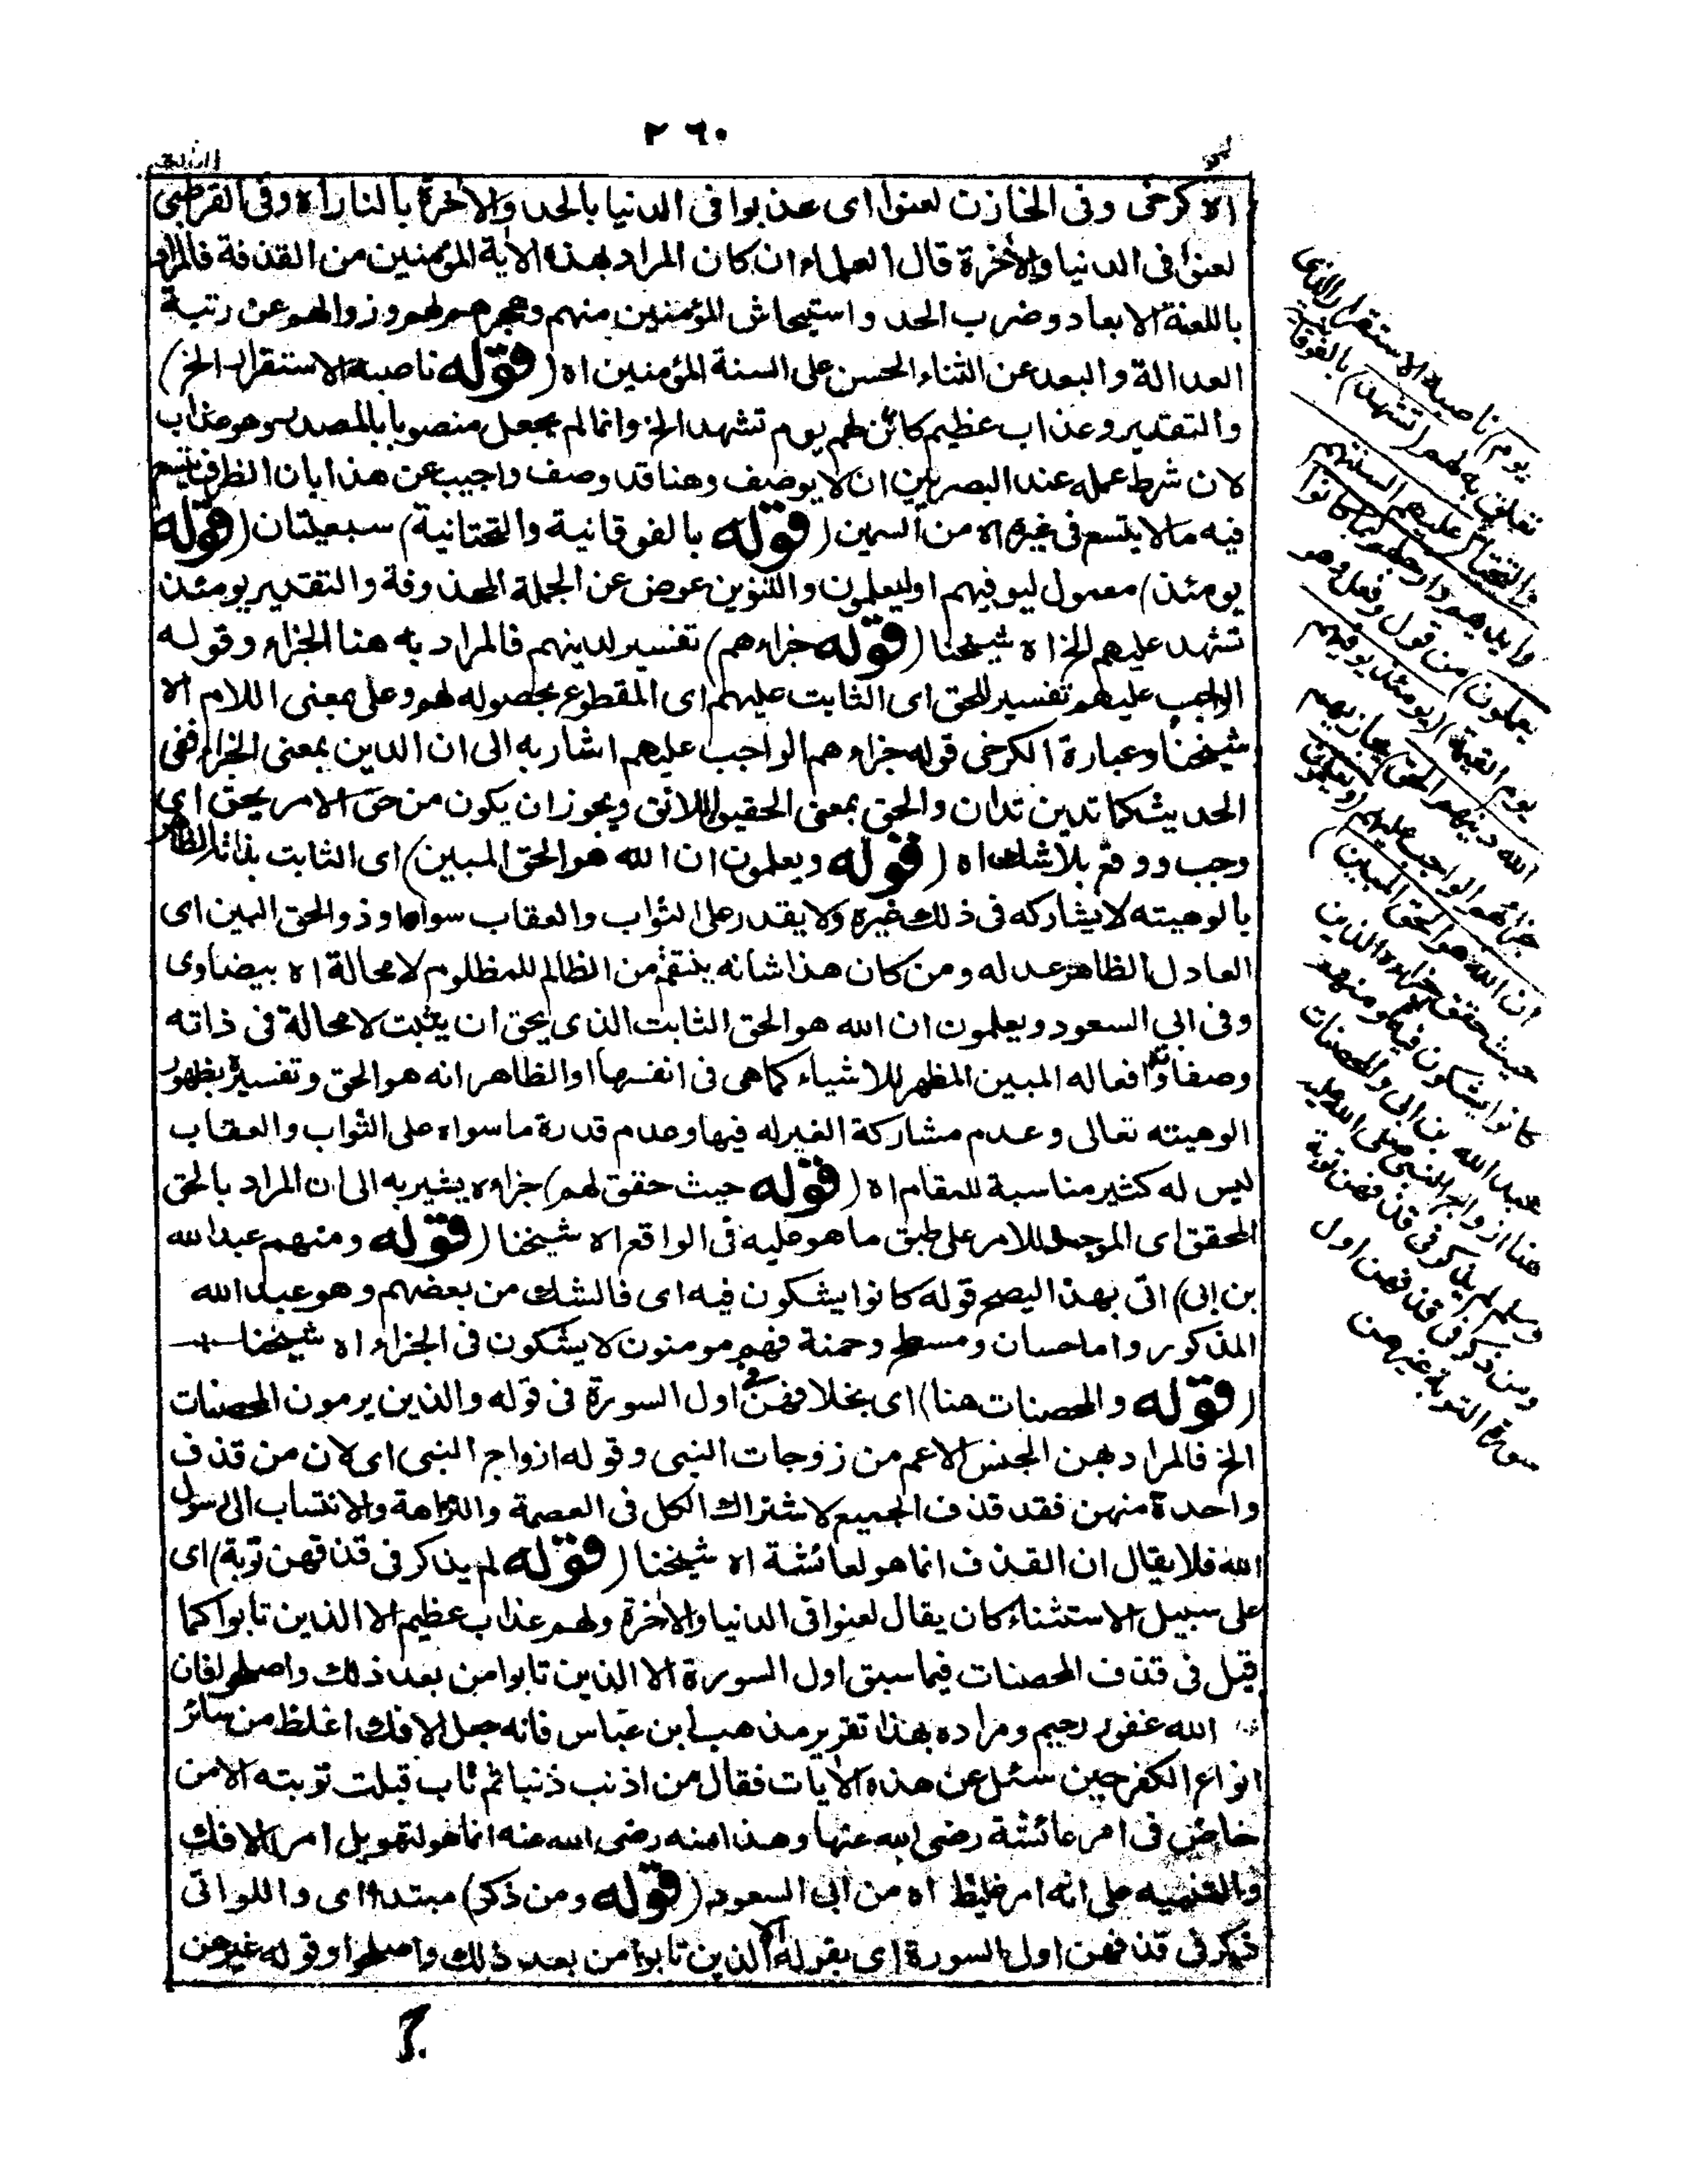 ٢٦٠
اه كرخى وفى الخازن لعنوا اى عذبوا فى الدنيا بالحد والاخرة بالنار اه وفى القرطبى
لعنوا فى الدنيا والاخرة قال العلماء ان كان المراد بهذه الاية المؤمنين من القذفة فالمراد
باللعنة الابعاد وضرب الحد واستيحاش المؤمنين منهم وهجرهم لهم وزوالهم عن رتبة
العدالة والبعد عن الثناء الحسن على السنة المؤمنين اه (قوله ناصبه الاستقرار الخ)
والتقدير وعذاب عظيم كائن لهم يوم تشهد الخ وانما لم يجعل منصوبا بالمصدر وهو عذاب
لان شرط عمله عند البصريين ان لا يوصف وهنا قد وصف واجيب عن هذا بان الظرف يتسع
فيه ما لا يتسع فى غيره اه من السمين (قوله بالفوقانية والتحتانية) سبعيتان (قوله
يومئذ) معمول ليوفيهم او ليعلمون والتنوين عوض عن الجملة المحذوفة والتقدير يومئذ
تشهد عليهم الخ اه شيخنا (قوله جزاءهم) تفسير لدينهم فالمراد به هنا الجزاء وقوله
الواجب عليهم تفسير للحق اى الثابت عليهم اى المقطوع بحصوله لهم وعلى بمعنى اللام اه
شيخنا وعبارة الكرخى قوله جزاءهم الواجب عليهم اشار به الى ان الدين بمعنى الجزاء ففى
الحديث كما تدين تدان والحق بمعنى الحقيق اللائق ويجوز ان يكون من حق الامر يحق اى
وجب ووقع بلا شك اه (قوله ويعلمون ان الله هو الحق المبين) اى الثابت بذاته الظاهر
بالوهيته لا يشاركه فى ذلك غيره ولا يقدر على الثواب والعقاب سواه او ذو الحق البين اى
العادل الظاهر عدله ومن كان هذا شانه ينتقم من الظالم للمظلوم لا محالة اه بيضاوى
وفى ابى السعود ويعلمون ان الله هو الحق الثابت الذى يحق ان يثبت لا محالة فى ذاته
وصفاته وافعاله المبين المظهر للاشياء كما هى فى انفسها او الظاهر انه هو الحق وتفسيره بظهور
الوهيته تعالى وعدم مشاركة الغير له فيها وعدم قدرة ما سواه على الثواب والعقاب
ليس له كثير مناسبة للمقام اه (قوله حيث حقق لهم) جزاءه يشير به الى ان المراد بالحق
المحقق اى الموجد للامر على طبق ما هو عليه فى الواقع اه شيخنا (قوله ومنهم عبد الله
بن ابى) اتى بهذا ليصح قوله كانوا يشكون فيه اى فالشك من بعضهم وهو عبد الله
المذكور واما حسان ومسطح وحمنة فهم مومنون لا يشكون فى الجزاء اه شيخنا
(قوله والمحصنات هنا) اى بخلافهن فى اول السورة فى قوله والذين يرمون المحصنات
الخ فالمراد بهن الجنس الاعم من زوجات النبى وقوله ازواج النبى اى لان من قذف
واحدة منهن فقد قذف الجميع لاشتراك الكل فى العصمة والنزاهة والانتساب الى رسول
الله فلا يقال ان القذف انما هو لعائشة اه شيخنا (قوله لم يذكر فى قذفهن توبة) اى
على سبيل الاستثناء كان يقال لعنوا فى الدنيا والاخرة ولهم عذاب عظيم الا الذين تابوا كما
قيل فى قذف المحصنات فيما سبق اول السورة الا الذين تابوا من بعد ذلك واصلحوا فان
الله غفور رحيم ومراده بهذا تقرير مذهب ابن عباس فانه جعل الافك اغلظ من سائر
انواع الكفر حين سئل عن هذه الايات فقال من اذنب ذنبا ثم تاب قبلت توبته الا من
خاض فى امر عائشة رضى الله عنها وهذا منه رضى الله عنه انما هو لتهويل امر الافك
والتنبيه على انه امر غليظ اه من ابى السعود (قوله ومن ذكر) مبتدا اى واللواتى
ذكر فى قذفهن اول السورة اى بقوله الا الذين تابوا من بعد ذلك واصلحوا وقوله غيرهن
(يوم) ناصبه الاستقرار الذى
تعلق به لهم (تشهد) بالفوقانية
والتحتانية (عليهم السنتهم
وايديهم وارجلهم بما كانوا
يعملون) من قول وفعل وهو
يوم القيمة (يومئذ يوفيهم
الله دينهم الحق) يجازيهم
جزاءهم الواجب عليهم (ويعلمون
ان الله هو الحق المبين)
حيث حقق لهم جزاءه الذين
كانوا يشكون فيه ومنهم
عبد الله بن ابى والمحصنات
هنا ازواج النبى صلى الله عليه
وسلم لم يذكر فى قذفهن توبة
ومن ذكر فى قذفهن اول
سورة التوبة غيرهن